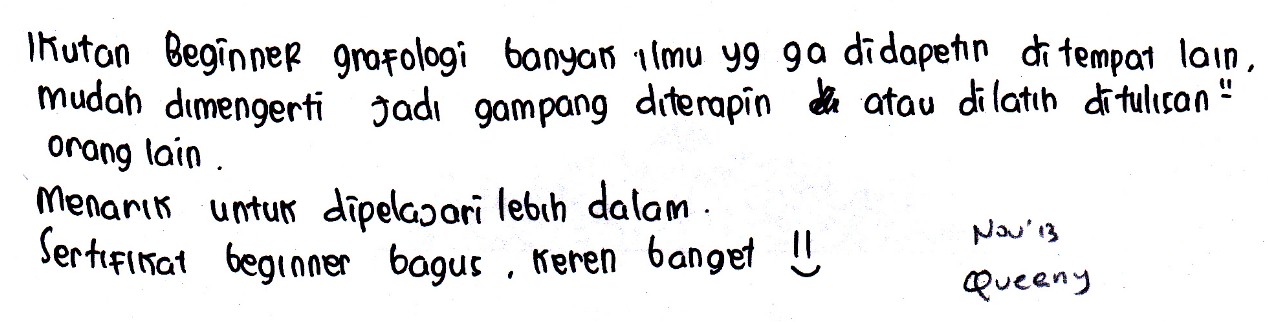 Ikutan Beginner grafologi banyak ilmu yg ga didapetin di tempat lain,
mudah dimengerti jadi gampang diterapin atau dilatih ditulisan"
orang lain.
Menarik untuk dipelajari lebih dalam.
Sertifikat beginner bagus, keren banget !!
Nov'13
Queeny